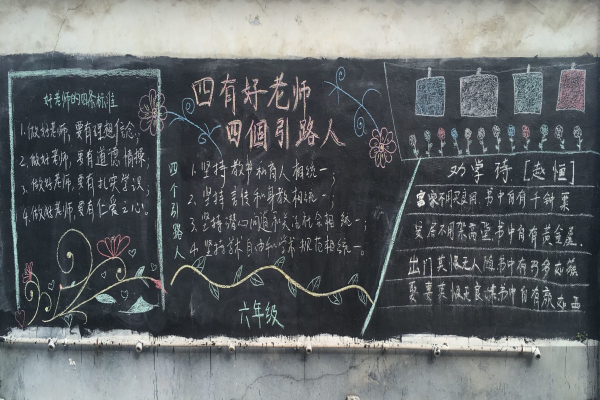 好老师的四条标准
1.做好老师,要有理想信念;
2.做好老师,要有道德情操;
3.做好老师,要有扎实学识;
4.做好老师,要有仁爱之心。
四有好老师
四個引路人
四个引路人
1.坚持教书和育人相统一;
2.坚持言传和身教相统一;
3.坚持潜心问道和关注社会相统一;
4.坚持学术自由和学术规范相统一。
六年级
劝学诗 [赵恒]
富家不用买良田,书中自有千钟粟
安居不用架高堂,书中自有黄金屋.
出门莫恨无人随书中车马多如簇
娶妻莫恨无良媒书中自有颜如玉